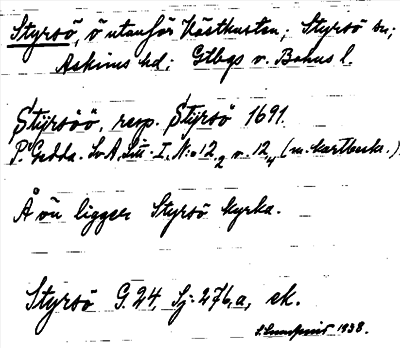 Styrsö, ö utanför Västkusten; Styrsö sn;
Askims hd; Gtbgs o. Bohus l.
Styrsöö, resp. Styrsö 1691.
P. Gedda. Sv. A. Litt. I, N:o 12 2 o. 12 4 (m. kartbeskr.)
Å ön ligger Styrsö kyrka.
Styrsö G. 24, Sj. 276, a, ek.
1938.